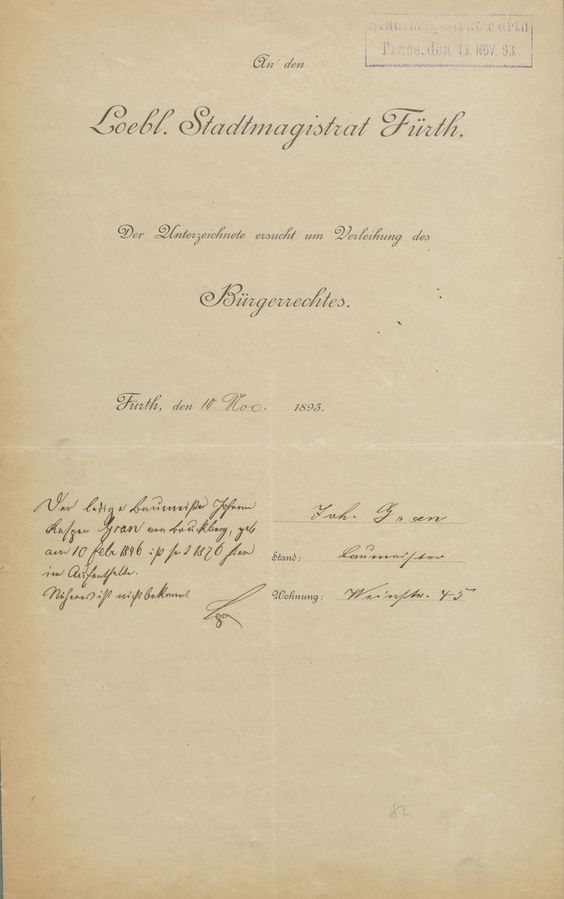 Stadtmagistrat Fürth
Praes. den 11 NOV. 93
An den
Loebl. Stadtmagistrat Fürth.
Der Unterzeichnete ersucht um Verleihung des
Bürgerrechtes.
Fürth, den 10. Nov. 1893.
Der ledige Baumeister Johann
Kaspar Gran von Bruckberg, geb
am 10 Febr 18 6 ist seit 1876 hier
im Aufenthalte.
Näheres ist nicht bekannt
Joh. Gran
Stand: Baumeister
Wohnung: Weinstr. 45
82